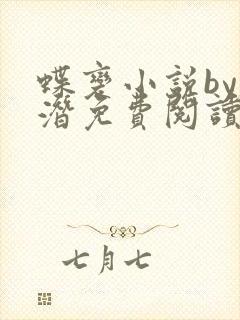 蝶变小说by
潜免费阅读
七月七